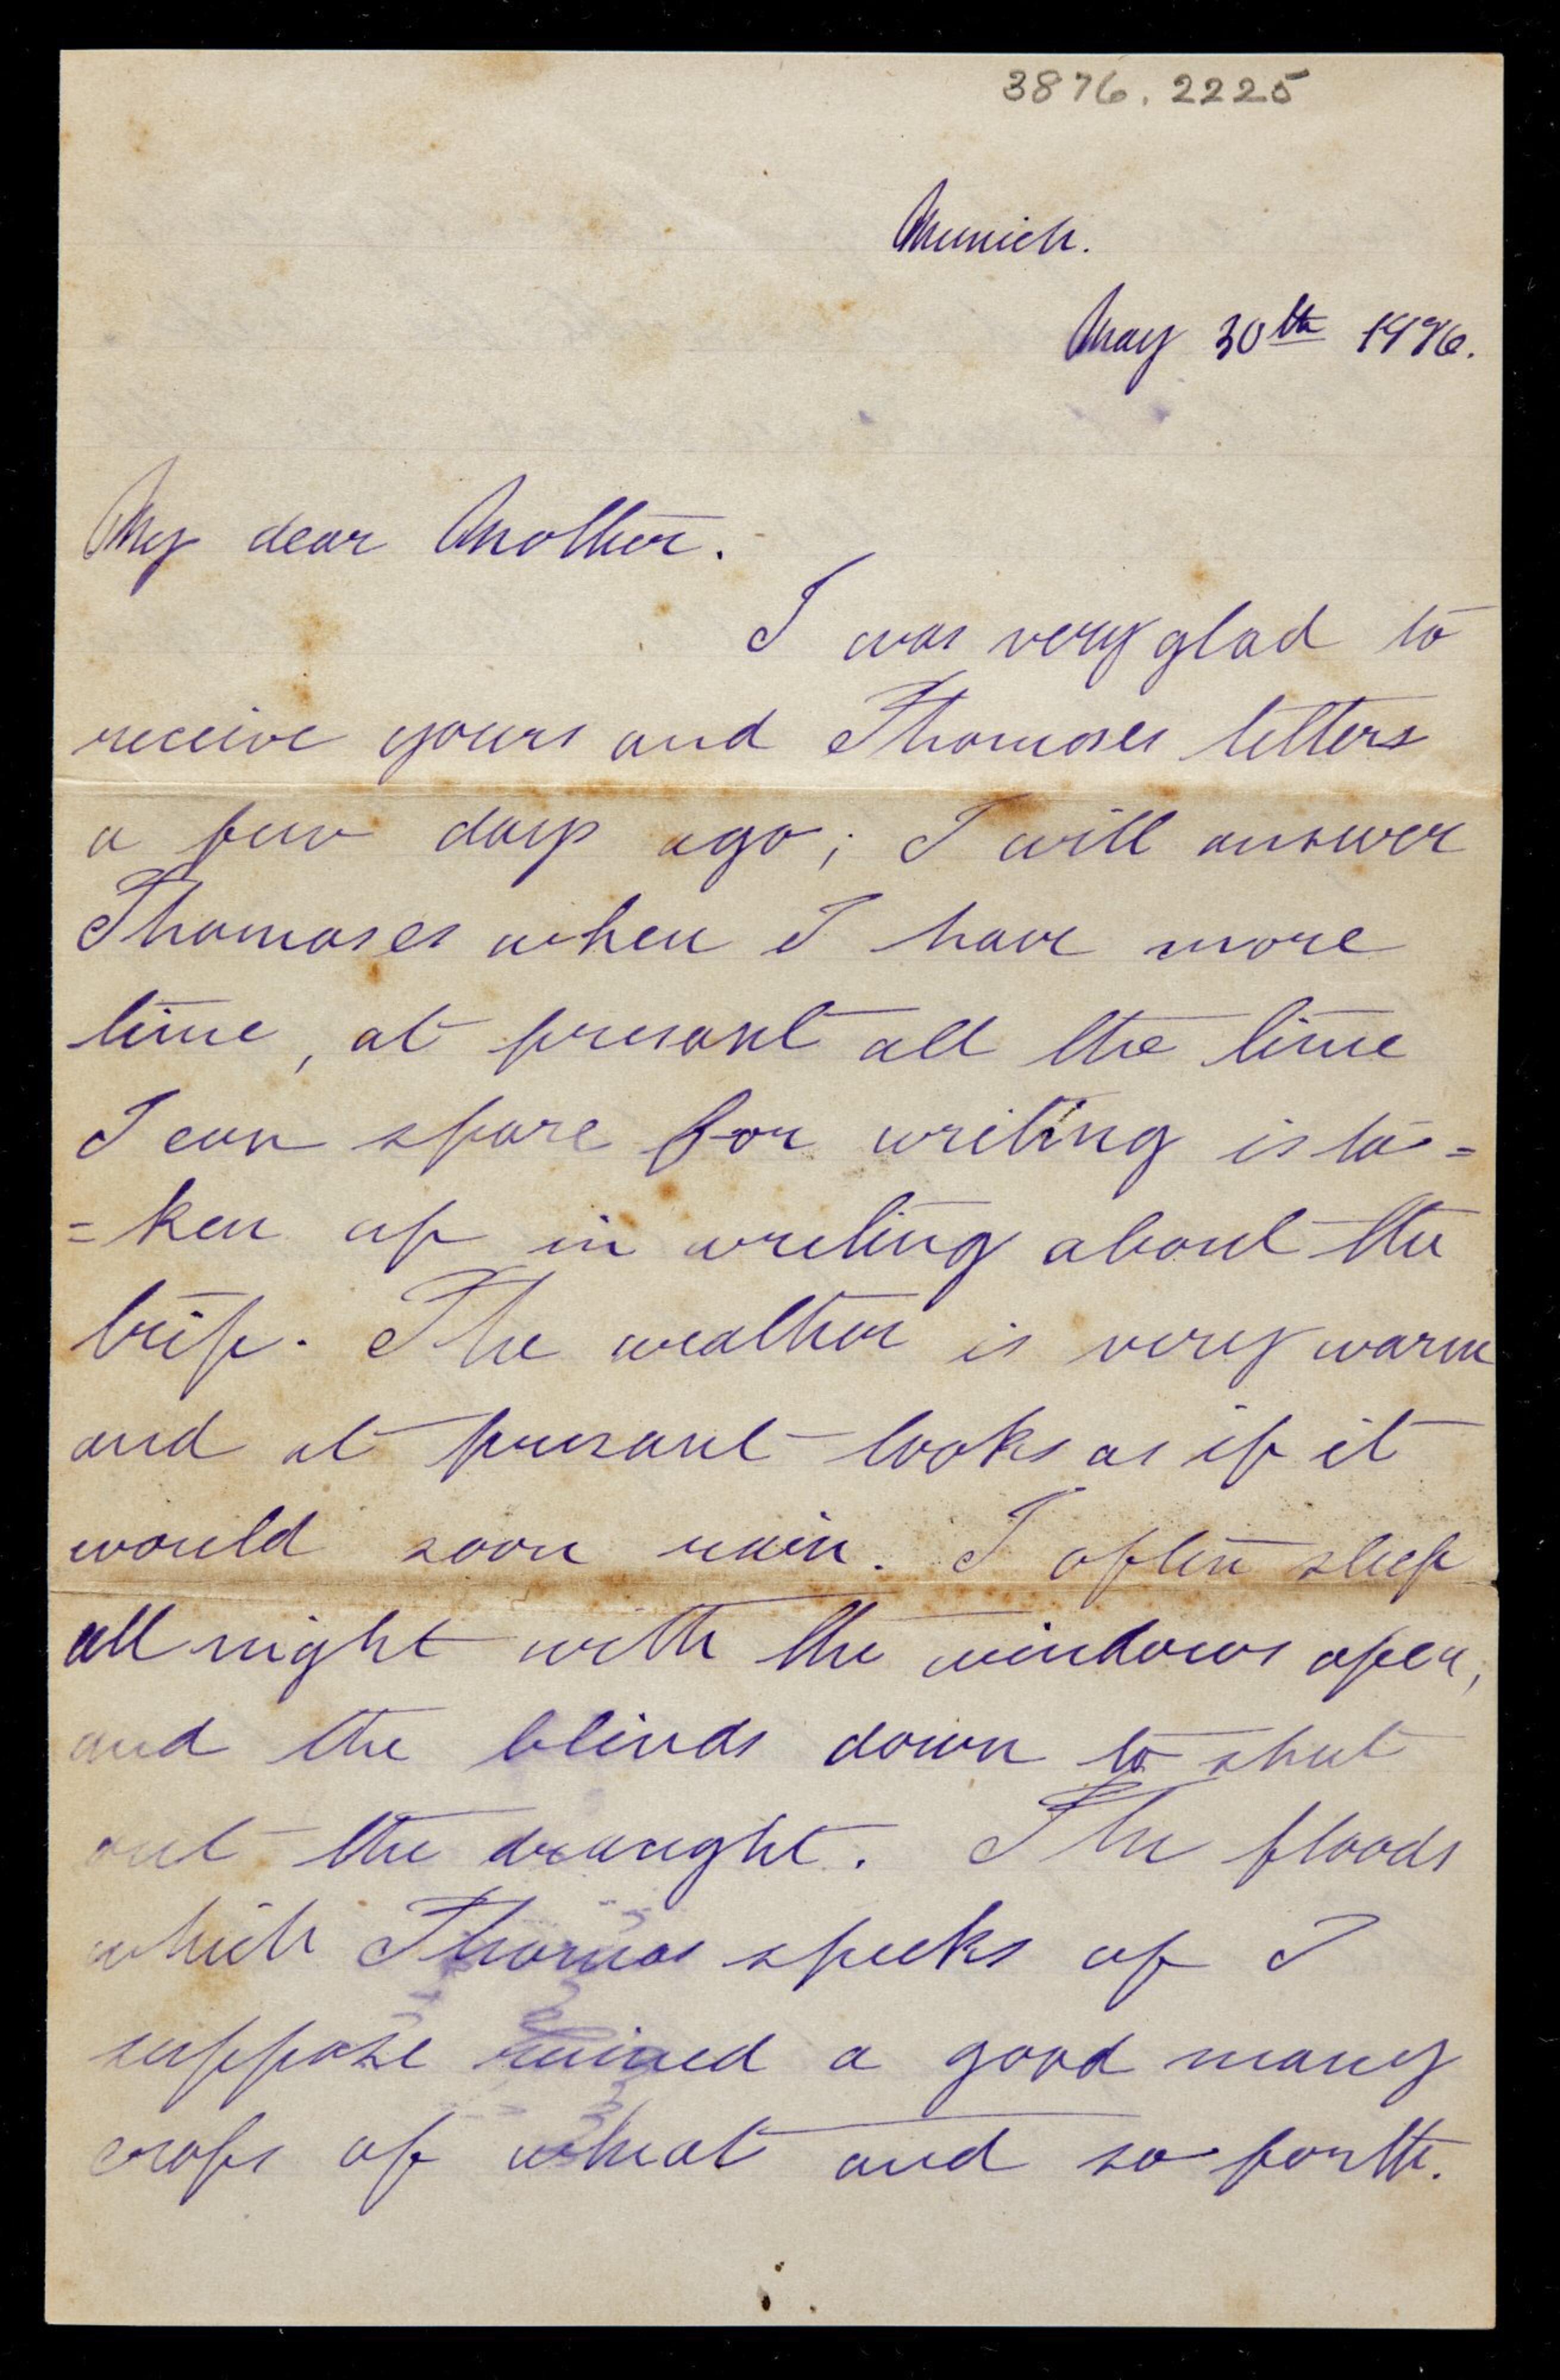 3876.2225
Munich.
May 30th 1876.
My dear Mother.
I was very glad to
receive yours and Thomases letters
a few days ago; I will answer
Thomases when I have more
time, at presant all the time
I can spare for writing is ta=
=ken up in writing about the
trip. The weather is very warm
and at presant looks as if it
would soon rain. I often sleep
all night with the windows open,
and the blinds down to shut
out the draught. The floods
which Thomas speeks of I
suppose ruined a good many
crops of wheat and so forth.